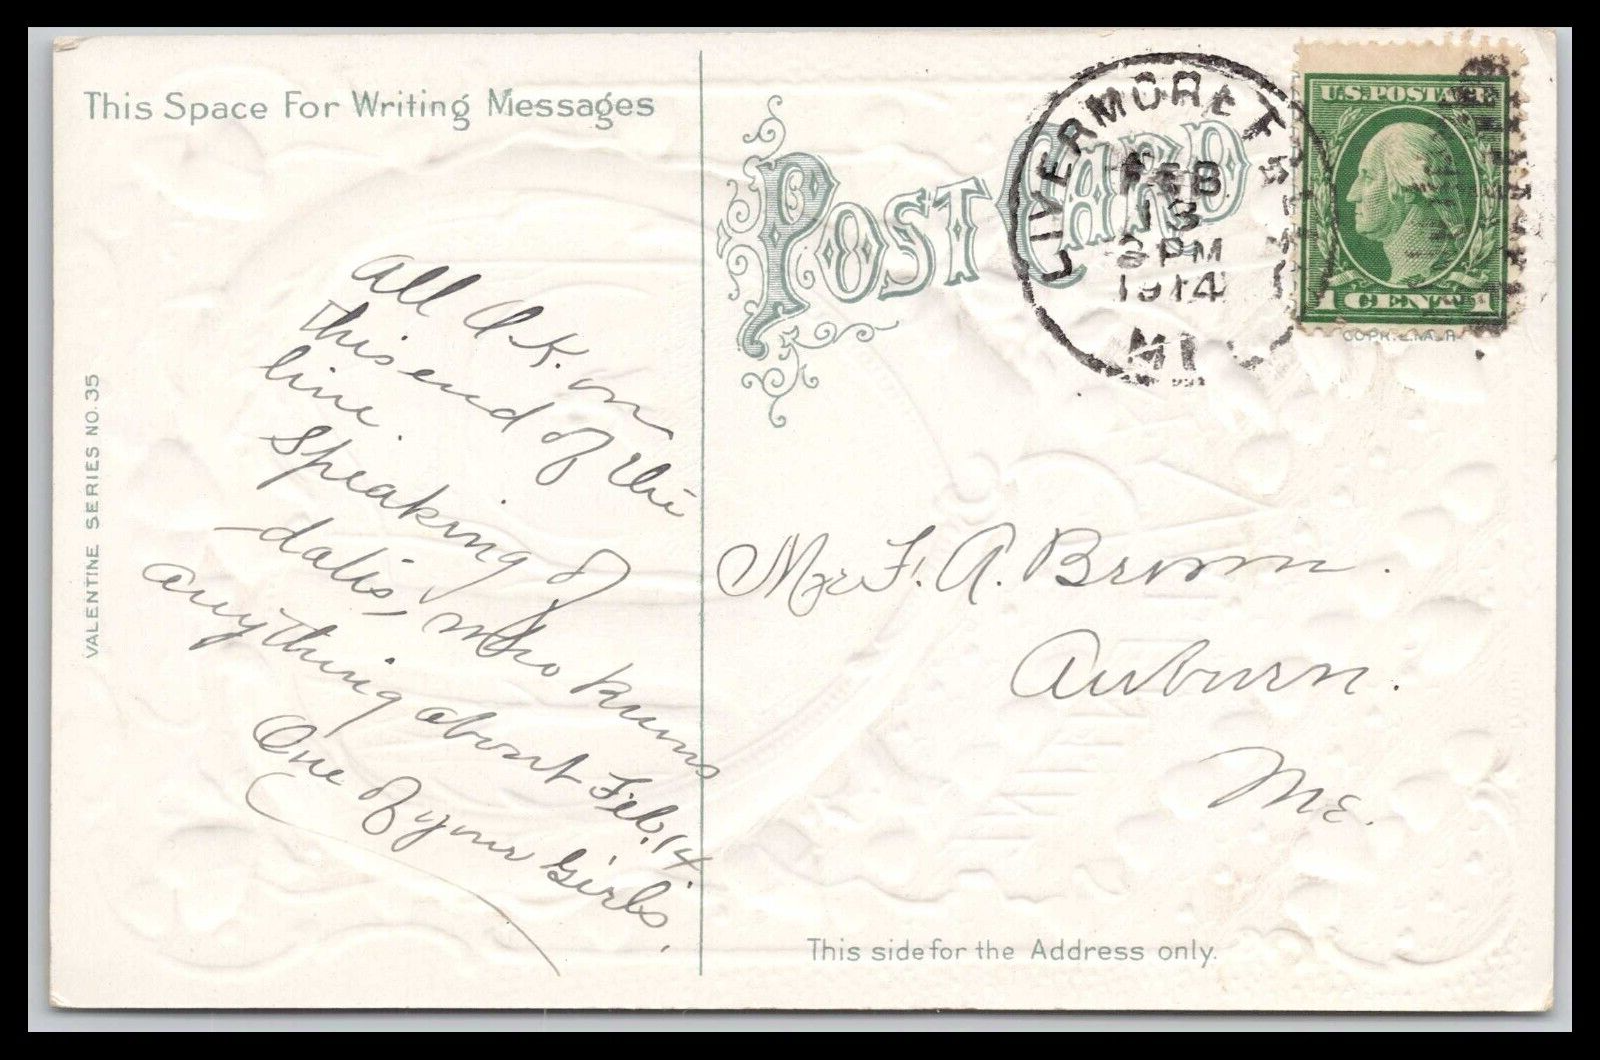 This Space For Writing Messages
VALENTINE SERIES NO. 35
All O.K. on
this end of the
line.
Speaking of
dates, who knows
anything about Feb. 14
One of your Girls.
POST CARD
LIVERMORE
FEB
13
PM
1914
U.S. POSTAGE
1 CENT 1
Mr F. A. Brown.
Auburn.
Me.
This side for the Address only.